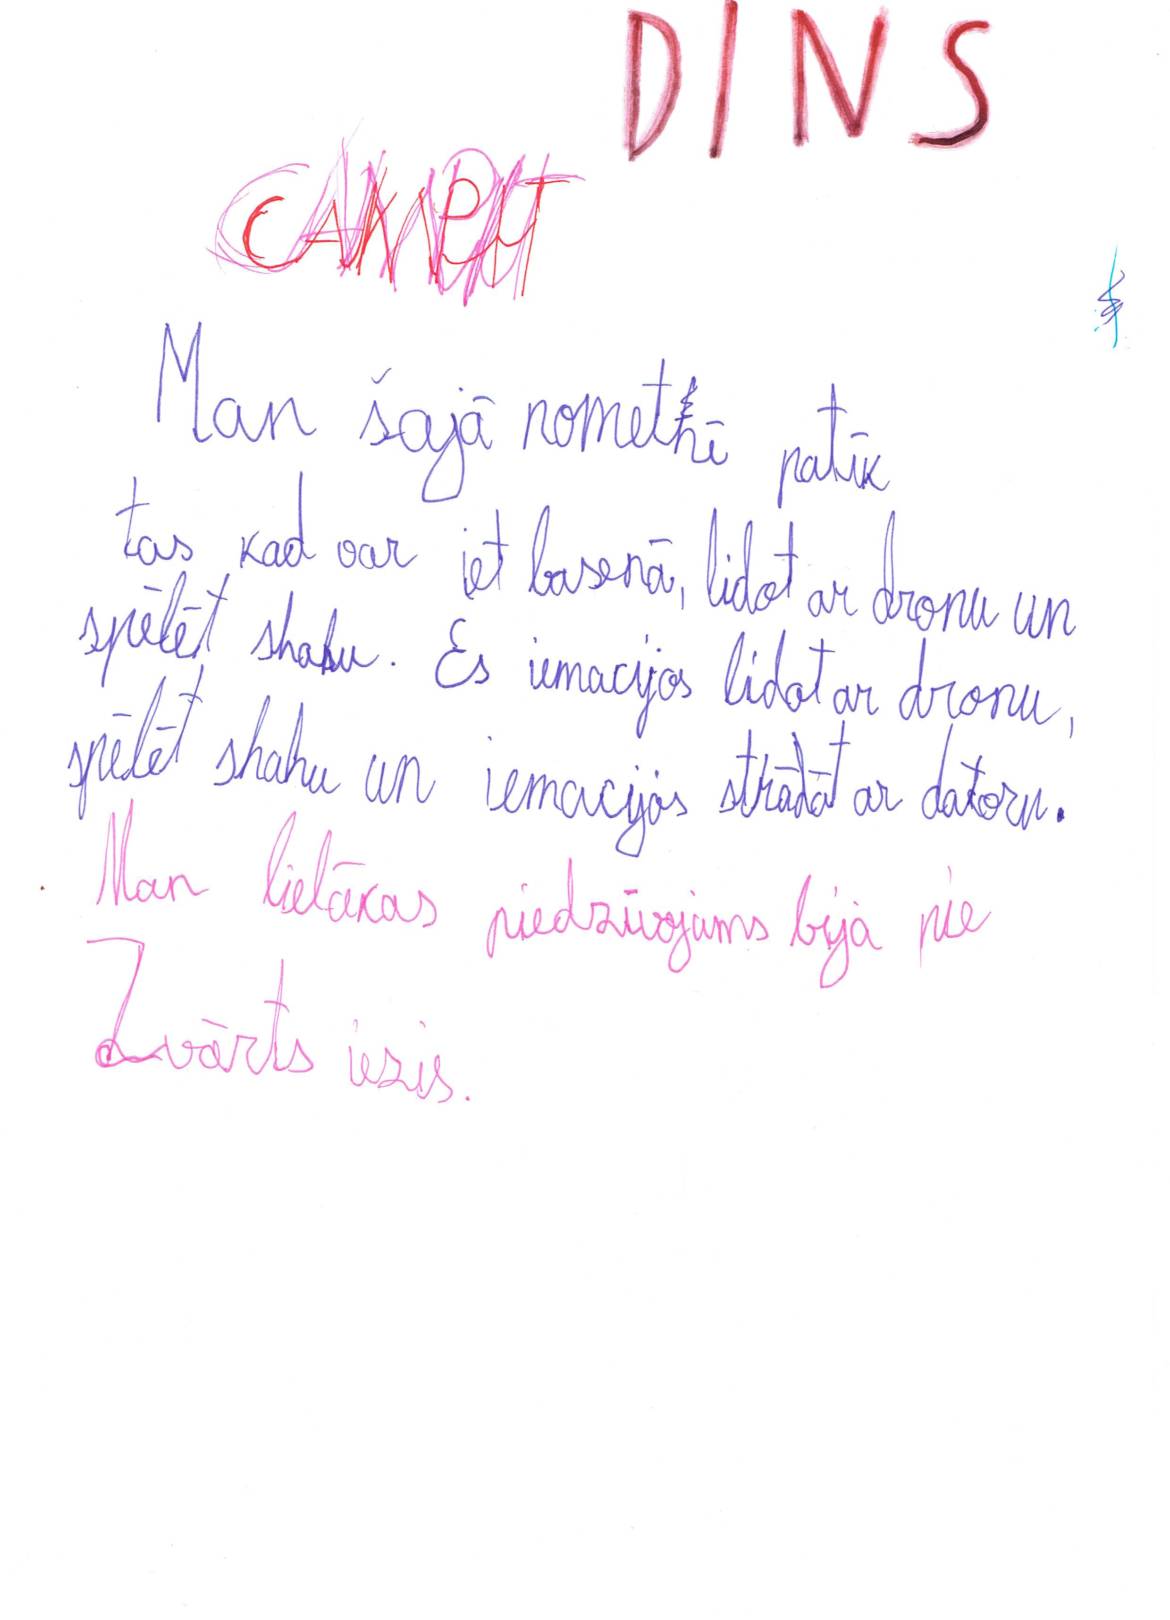 DINS
Man šajā nometnī patīk
tas kad var iet basenā, lidot ar dronu un
spēlēt shahu. Es iemacijos lidot ar dronu,
spēlēt shahu un iemacijos strādāt ar datoru.
Man lielākas piedzīvojums bija pie
Zvārts iezis.